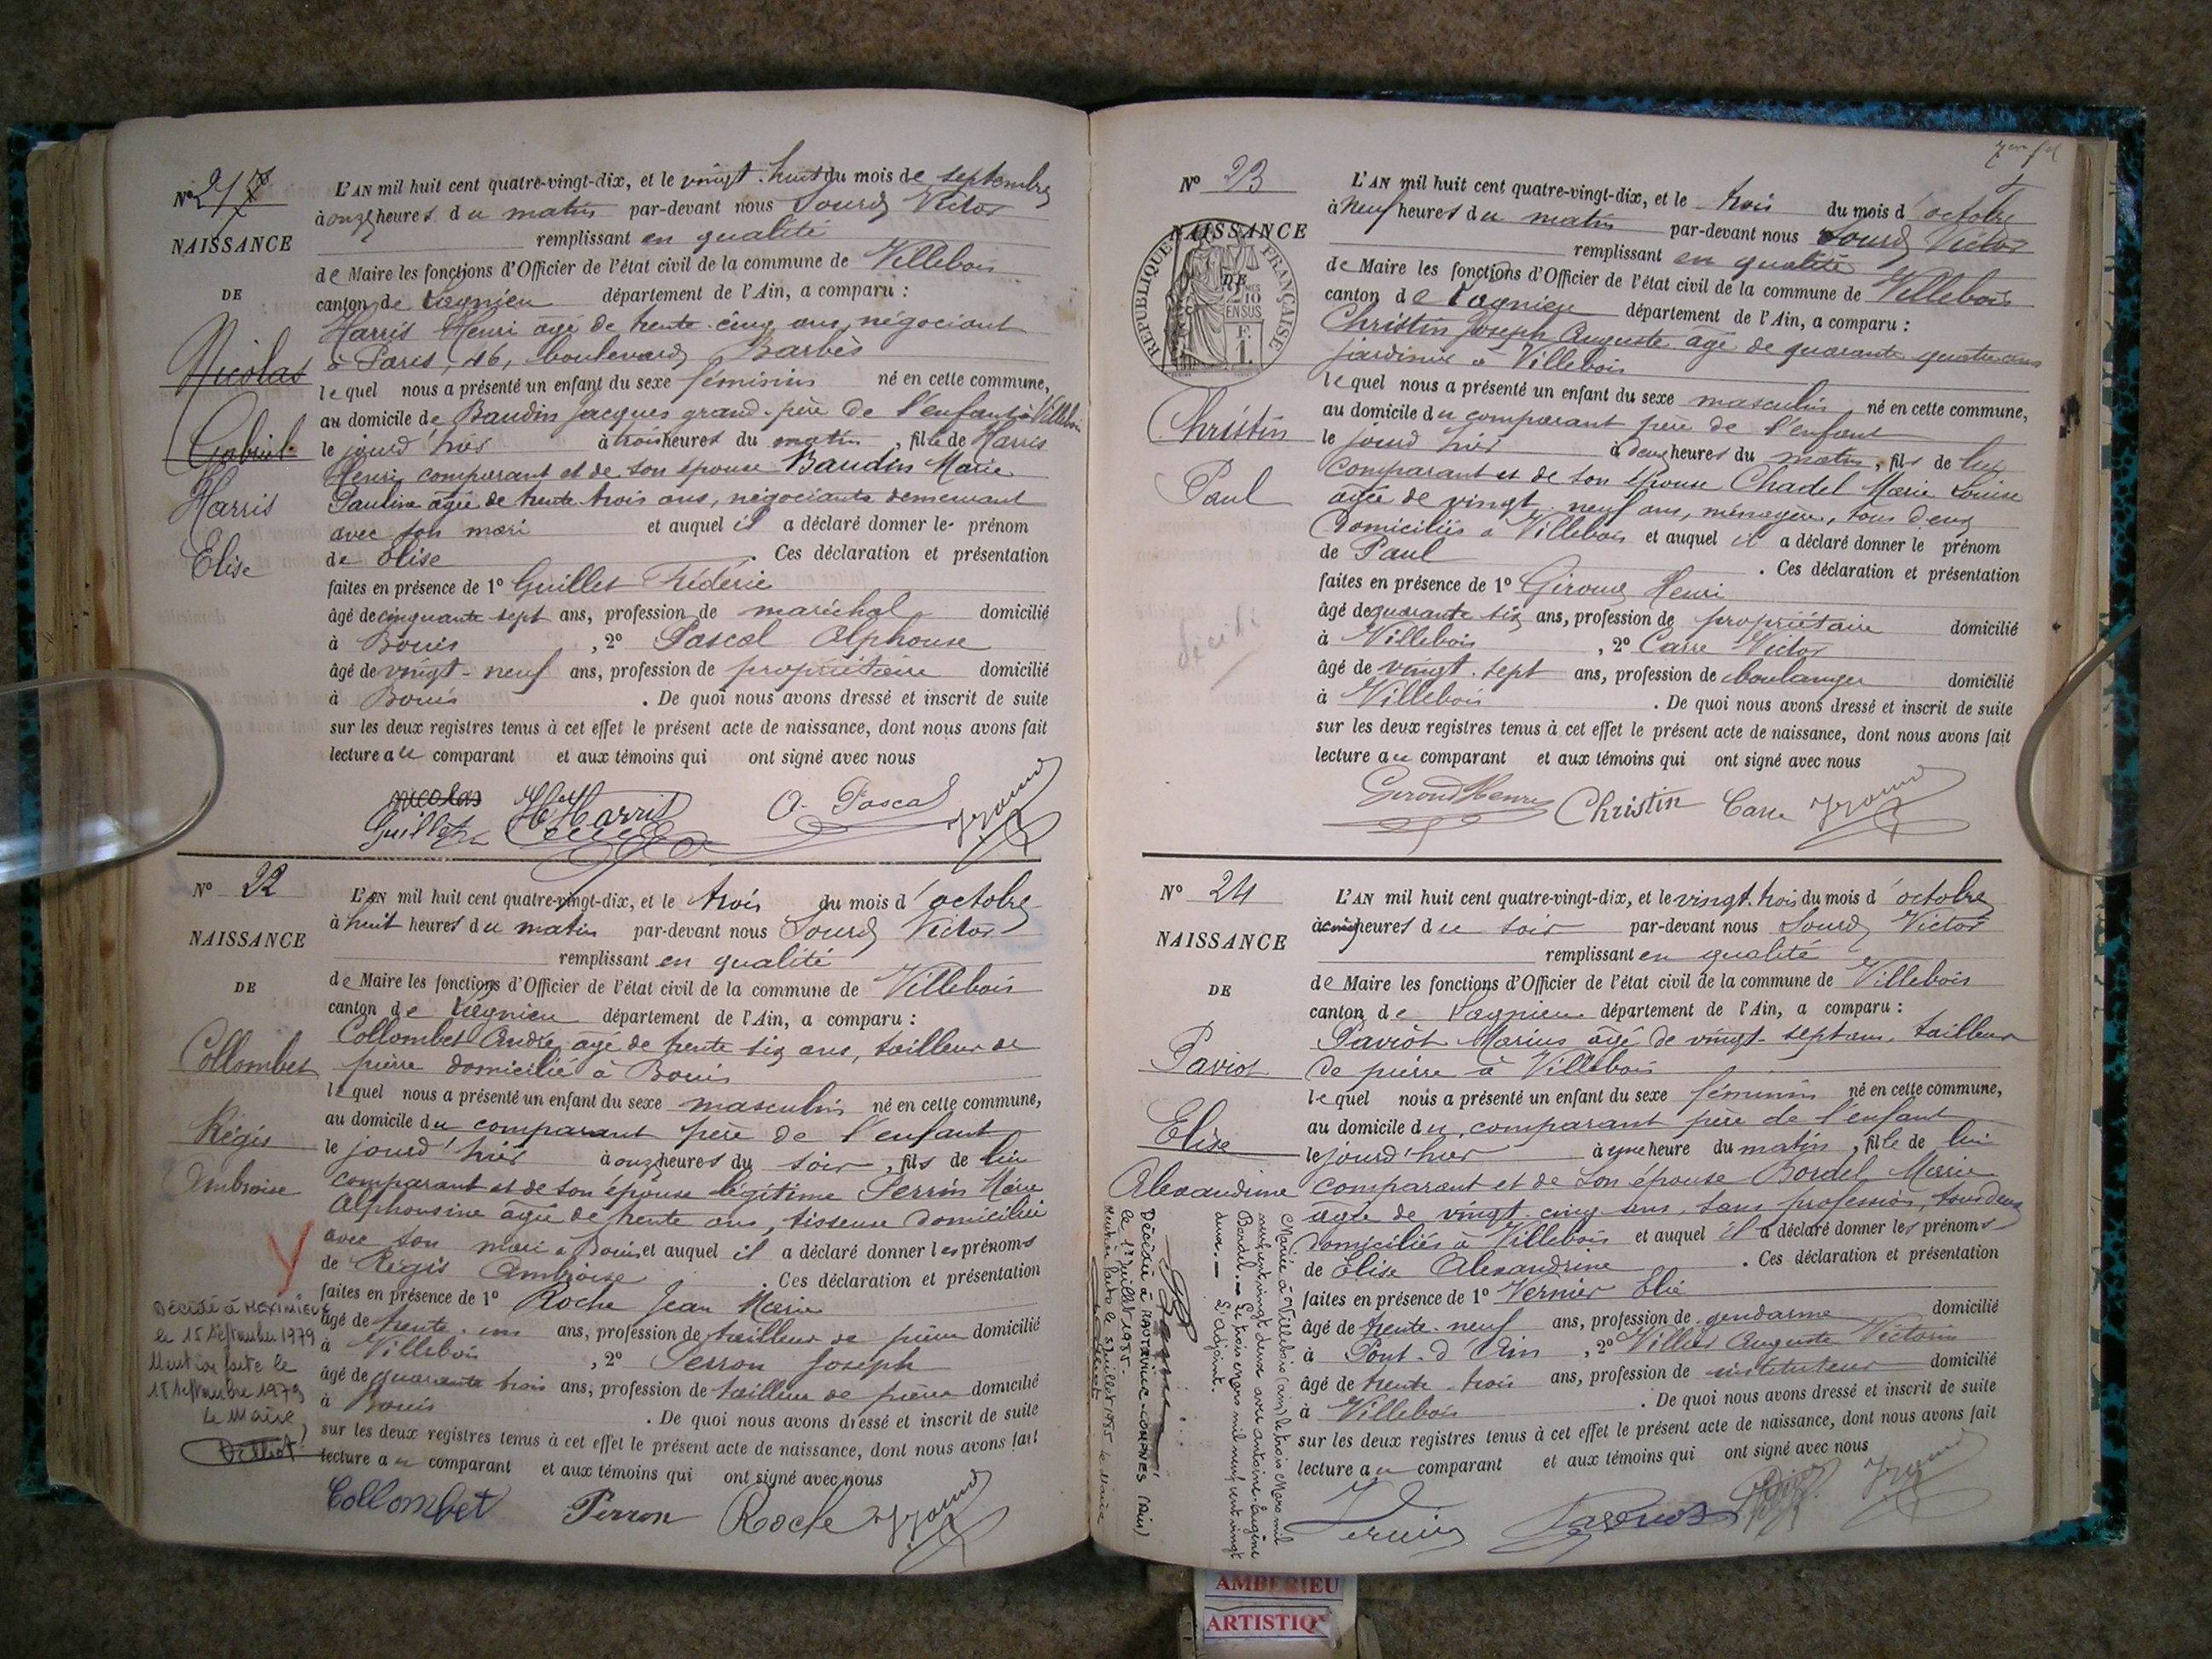 N° 21
NAISSANCE
DE
Nicolas
Gabriel
Harris
Elise
L'AN mil huit cent quatre-vingt-dix, et le vingt-huit du mois de septembre
à onze heures du matin par-devant nous Sourd Victor
remplissant en qualité
de Maire les fonctions d'Officier de l'état civil de la commune de Villebois
canton de Lagnieu département de l'Ain, a comparu :
Harris Henri âgé de trente-cinq ans, négociant
à Paris, 46, boulevard Barbès
lequel nous a présenté un enfant du sexe féminin né en cette commune,
au domicile de Baudin Jacques grand-père de l'enfant à Villebois
le jourd'hier à trois heures du matin, fille de Harris
Henri comparant et de son épouse Baudin Marie
Pauline âgée de trente trois ans, négociante demeurant
avec son mari et auquel il a déclaré donner le prénom
de Elise . Ces déclaration et présentation
faites en présence de 1° Guillet Fréderic
âgé de cinquante sept ans, profession de maréchal domicilié
à Bouis , 2° Pascal Alphonse
âgé de vingt-neuf ans, profession de propriétaire domicilié
à Bouis . De quoi nous avons dressé et inscrit de suite
sur les deux registres tenus à cet effet le présent acte de naissance, dont nous avons fait
lecture au comparant et aux témoins qui ont signé avec nous
nicolas
Guillet H Harris A. Pascal
N° 22
NAISSANCE
DE
Collombet
Régis
Ambroise
L'AN mil huit cent quatre-vingt-dix, et le trois du mois d'octobre
à huit heures du matin par-devant nous Sourd Victor
remplissant en qualité
de Maire les fonctions d'Officier de l'état civil de la commune de Villebois
canton de Lagnieu département de l'Ain, a comparu :
Collombet André, âgé de trente six ans, tailleur de
pierre domicilié à Bouis
lequel nous a présenté un enfant du sexe masculin né en cette commune,
au domicile du comparant père de l'enfant
le jourd'hier à onze heures du soir, fils de lui
comparant et de son épouse légitime Perrin Marie
Alphonsine âgée de trente ans, tisseuse domiciliée
avec son mari à Bouis et auquel il a déclaré donner les prénoms
de Régis Ambroise . Ces déclaration et présentation
faites en présence de 1° Roche Jean Marie
âgé de trente-un ans, profession de tailleur de pierre domicilié
à Villebois , 2° Perron Joseph
âgé de quarante trois ans, profession de tailleur de pierre domicilié
à Bouis . De quoi nous avons dressé et inscrit de suite
sur les deux registres tenus à cet effet le présent acte de naissance, dont nous avons fait
lecture au comparant et aux témoins qui ont signé avec nous
Décédé à MEXIMIEUX
le 15 Septembre 1979
Mention faite le
18 Septembre 1979
Le Maire,
Collombet Perron Roche
N° 23
NAISSANCE
DE
RÉPUBLIQUE FRANÇAISE
Christin
Paul
décédé
L'AN mil huit cent quatre-vingt-dix, et le trois du mois d'octobre
à neuf heures du matin par-devant nous Sourd Victor
remplissant en qualité
de Maire les fonctions d'Officier de l'état civil de la commune de Villebois
canton de Lagnieu département de l'Ain, a comparu :
Christin Joseph Auguste âgé de quarante quatre ans
jardinier à Villebois
lequel nous a présenté un enfant du sexe masculin né en cette commune,
au domicile du comparant père de l'enfant
le jourd'hier à deux heures du matin, fils de lui
comparant et de son épouse Chadel Marie Louise
âgée de vingt-neuf ans, ménagère, tous deux
domiciliés à Villebois et auquel il a déclaré donner le prénom
de Paul . Ces déclaration et présentation
faites en présence de 1° Giroud Henri
âgé de quarante six ans, profession de propriétaire domicilié
à Villebois , 2° Carre Victor
âgé de vingt-sept ans, profession de boulanger domicilié
à Villebois . De quoi nous avons dressé et inscrit de suite
sur les deux registres tenus à cet effet le présent acte de naissance, dont nous avons fait
lecture au comparant et aux témoins qui ont signé avec nous
Giroud Henry Christin Carre
N° 24
NAISSANCE
DE
Paviot
Elise
Alexandrine
L'AN mil huit cent quatre-vingt-dix, et le vingt-trois du mois d'octobre
à cinq heures du soir par-devant nous Sourd Victor
remplissant en qualité
de Maire les fonctions d'Officier de l'état civil de la commune de Villebois
canton de Lagnieu département de l'Ain, a comparu :
Paviot Marius âgé de vingt-sept ans, tailleur
de pierre à Villebois
lequel nous a présenté un enfant du sexe féminin né en cette commune,
au domicile du comparant père de l'enfant
le jourd'hier à une heure du matin, fille de lui
comparant et de son épouse Bordel Marie
âgée de vingt-cinq ans, sans profession, tous deux
domiciliés à Villebois et auquel il a déclaré donner les prénoms
de Elise Alexandrine . Ces déclaration et présentation
faites en présence de 1° Vernier Elie
âgé de trente-neuf ans, profession de gendarme domicilié
à Pont-d'Ain , 2° Villier Auguste Victorin
âgé de trente-trois ans, profession de instituteur domicilié
à Villebois . De quoi nous avons dressé et inscrit de suite
sur les deux registres tenus à cet effet le présent acte de naissance, dont nous avons fait
lecture au comparant et aux témoins qui ont signé avec nous
Mariée à Villebois (Ain) le trois Mars mil
neuf cent vingt deux avec Antoine Eugène
Bardel.- Le trois Mars mil neuf cent vingt
deux.- L'Adjoint.
Décédée à HAUTEVILLE-LOMPNES (Ain)
le 1er Juillet 1985.
Mention faite le 5 Juillet 1985 Le Maire
AMBERIEU
ARTISTIQ